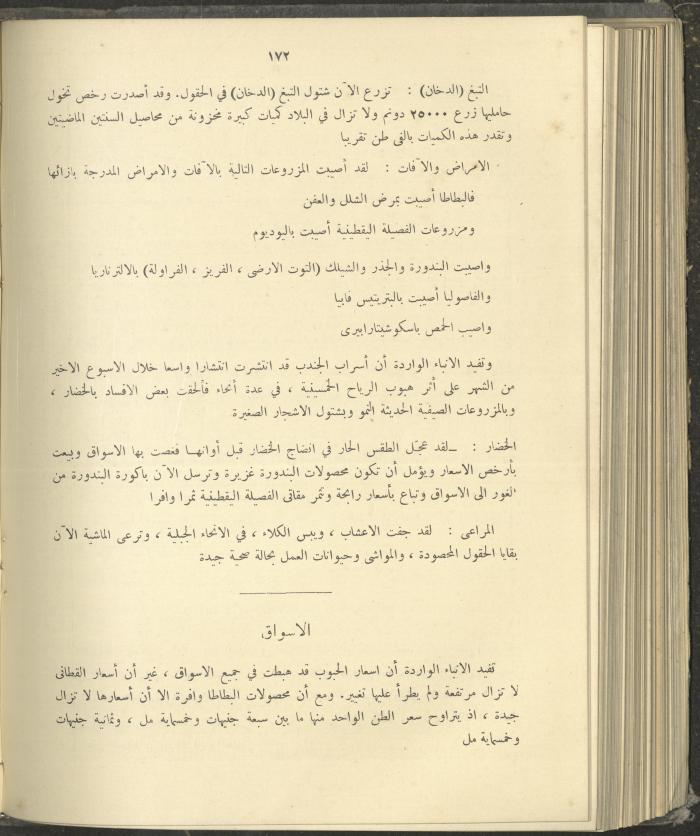 ١٧٢
التبغ (الدخان) : تزرع الآن شتول التبغ (الدخان) في الحقول. وقد أصدرت رخص تخول
حامليها زرع ٢٥٠٠٠ دونم ولا تزال في البلاد كميات كبيرة مخزونة من محاصيل السنتين الماضيتين
وتقدر هذه الكميات بالفى طن تقريبا
الامراض والآفات : لقد أصيبت المزروعات التالية بالآفات والامراض المدرجة بازائها
فالبطاطا أصيبت بمرض الشلل والعفن
ومزروعات الفصيلة اليقطينية أصيبت باليوديوم
واصيبت البندورة والجذر والشيلك (التوت الارضى ، الفريز ، الفراولة) بالالترناريا
والفاصوليا أصيبت بالبتريتيس فابيا
واصيب الحمص باسكوشيتارابيرى
وتفيد الانباء الواردة أن أسراب الجندب قد انتشرت انتشارا واسعا خلال الاسبوع الاخير
من الشهر على أثر هبوب الرياح الخمسينية ، في عدة أنحاء فألحقت بعض الافساد بالخضار ،
وبالمزروعات الصيفية الحديثة النمو وبشتول الاشجار الصغيرة
الخضار : ـلقد عجّل الطقس الحار في انضاج الخضار قبل أوانهـا فغصت بها الاسواق وبيعت
بأرخص الاسعار ويؤمل أن تكون محصولات البندورة غزيرة وترسل الآن باكورة البندورة من
الغور الى الاسواق وتباع بأسعار رابحة وتثمر مقاتى الفصيلة اليقطينية ثمرا وافرا
المراعى : لقد جفت الاعشاب ، ويبس الكلاء ، في الانحاء الجبلية ، وترعى الماشية الآن
بقايا الحقول المحصودة ، والمواشى وحيوانات العمل بحالة صحية جيدة
الاسواق
تفيد الانباء الواردة أن اسعار الحبوب قد هبطت في جميع الاسواق ، غير أن أسعار القطانى
لا تزال مرتفعة ولم يطرأ عليها تغيير. ومع أن محصولات البطاطا وافرة الا أن أسعارها لا تزال
جيدة ، اذ يتراوح سعر الطن الواحد منها ما بين سبعة جنيهات وخمسماية مل ، وثمانية جنيهات
وخمسماية مل